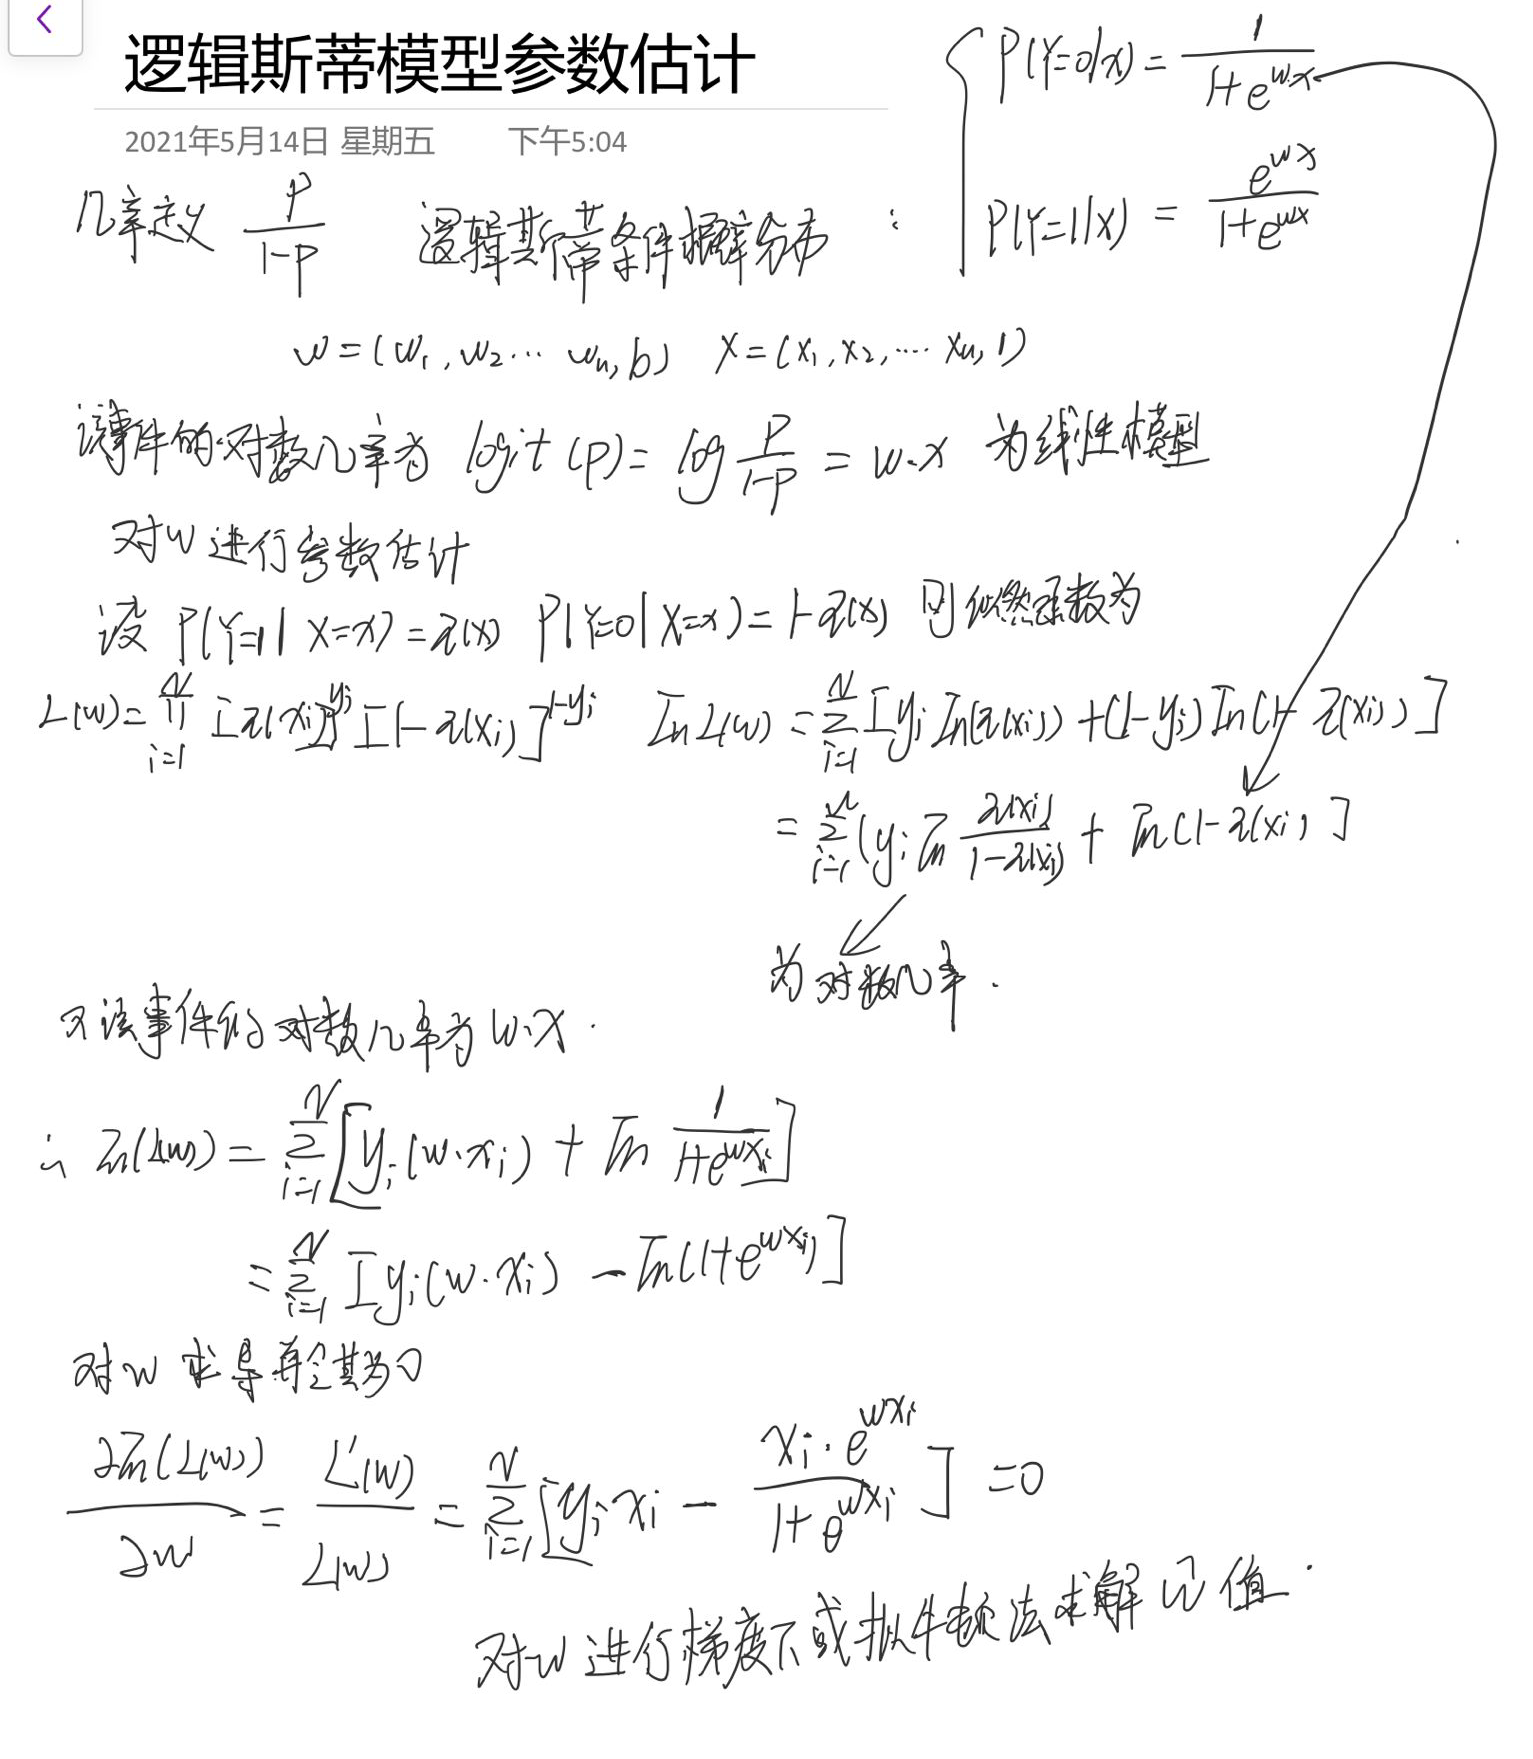 逻辑斯蒂模型参数估计
2021年5月14日 星期五 下午5:04
几率定义 P/(1-P) 逻辑斯蒂条件概率分布: { P(Y=0|x) = 1/(1+e^{w·x})
P(Y=1|x) = e^{wx}/(1+e^{wx})
w=(w₁,w₂… wₙ,b) X=(x₁,x₂,…. xₙ,1)
该事件的对数几率为 logit(P)= log P/(1-P) = w·x 为线性模型
对w进行参数估计
设 P(Y=1|X=x)=π(x) P(Y=0|X=x)=1-π(x) 则似然函数为
L(w)= ∏_{i=1}^{N} [π(xi)]^{yi}[1-π(xi)]^{1-yi} ln L(w) = ∑_{i=1}^{N}[yi ln(π(xi))+(1-yi)ln(1-π(xi))]
= ∑_{i=1}^{N}(yi ln π(xi)/(1-π(xi)) + ln(1-π(xi)]
为对数几率.
又该事件的对数几率为w·x.
∴ ln(L(w)) = ∑_{i=1}^{N}[yi(w·xi) + ln 1/(1+e^{wxi})]
= ∑_{i=1}^{N} [yi(w·xi) - ln(1+e^{wxi})]
对w求导并令其为0
∂ln(L(w))/∂w = L'(w)/L(w) = ∑_{i=1}^{N}[yi xi - xi·e^{wxi}/(1+e^{wxi})] =0
对w进行梯度下或拟牛顿法求解ŵ值.